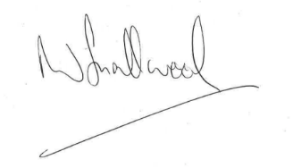 RW Smallwood